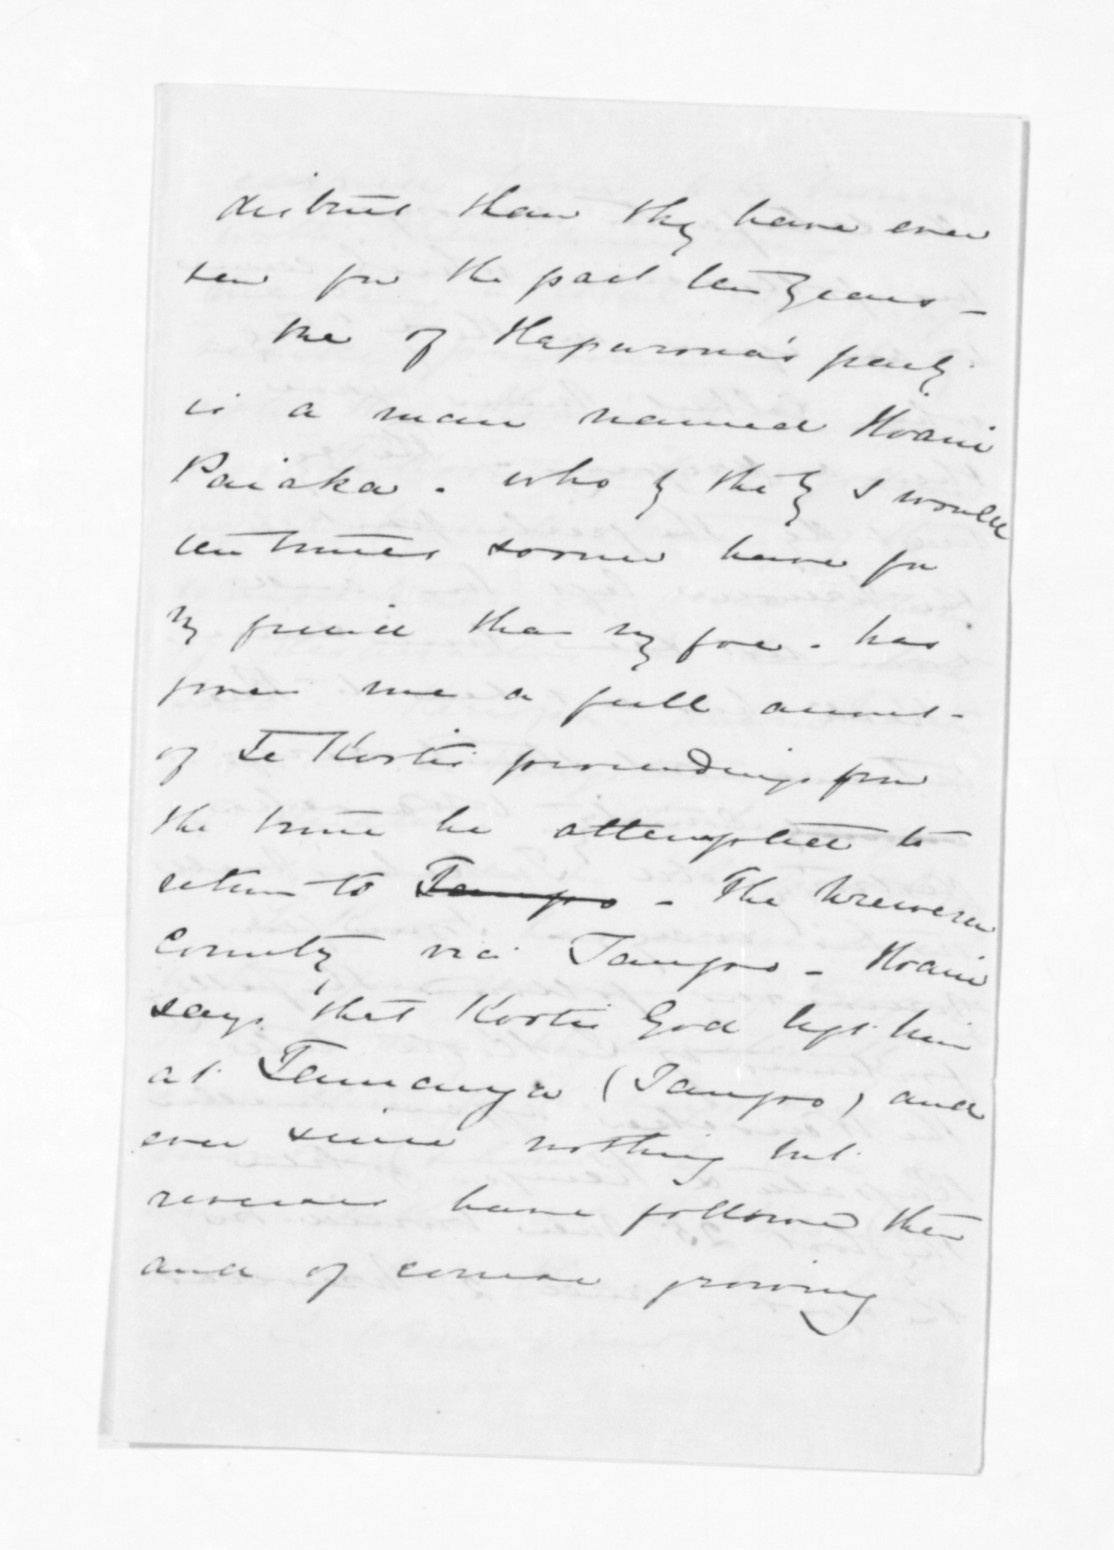 district than they have ever
been for the past ten years -
One of Hapurona's party
is a man named Hoani
Paiaka. who by the by I would
ten times sooner have for
my friend than my foe. has
given me a full account
of Te Kooti's proceedings from
the time he attempted to
return to Taupo - The Urewera
County via Taupo - Hoani
says that Kooti's God left him
at Tauranga (Taupo) and
ever since nothing but
reverses have followed them
and of course growing